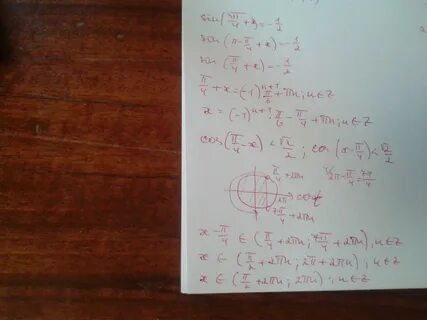 sin(3π/4 + x) = -1/2
sin(π - π/4 + x) = -1/2
sin(π/4 + x) = -1/2
π/4 + x = (-1)^{n+1} π/6 + πn; n ∈ Z
x = (-1)^{n+1} · π/6 - π/4 + πn; n ∈ Z
cos(π/4 - x) < √2/2 ; cos(x - π/4) < √2/2
π/4 + 2πn
2π - π/4 = 7π/4
2π
7π/4 + 2πn
x - π/4 ∈ (π/4 + 2πn; 7π/4 + 2πn), n ∈ Z
x ∈ (π/2 + 2πn; 2π + 2πn); n ∈ Z
x ∈ (π/2 + 2πn; 2πn); n ∈ Z